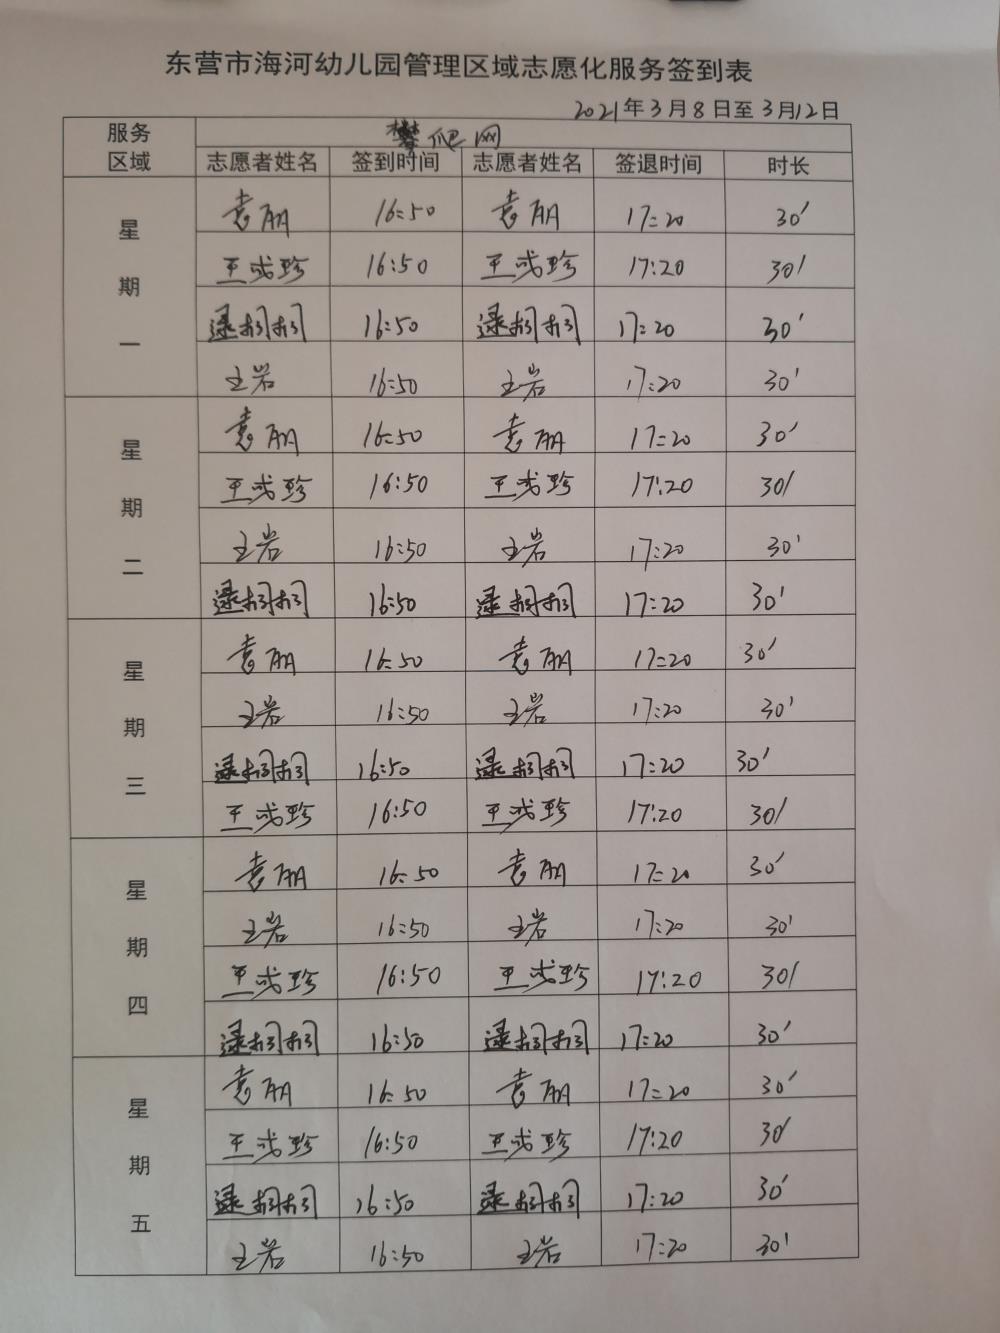 东营市海河幼儿园管理区域志愿化服务签到表
2021年3月8日至3月12日
服务区域 攀爬网
志愿者姓名 签到时间 志愿者姓名 签退时间 时长
星期一
袁朋 16:50 袁朋 17:20 30'
王彧珍 16:50 王彧珍 17:20 30'
逯栩栩 16:50 逯栩栩 17:20 30'
王岩 16:50 王岩 17:20 30'
星期二
袁朋 16:50 袁朋 17:20 30'
王彧珍 16:50 王彧珍 17:20 30'
王岩 16:50 王岩 17:20 30'
逯栩栩 16:50 逯栩栩 17:20 30'
星期三
袁朋 16:50 袁朋 17:20 30'
王岩 16:50 王岩 17:20 30'
逯栩栩 16:50 逯栩栩 17:20 30'
王彧珍 16:50 王彧珍 17:20 30'
星期四
袁朋 16:50 袁朋 17:20 30'
王岩 16:50 王岩 17:20 30'
王彧珍 16:50 王彧珍 17:20 30'
逯栩栩 16:50 逯栩栩 17:20 30'
星期五
袁朋 16:50 袁朋 17:20 30'
王彧珍 16:50 王彧珍 17:20 30'
逯栩栩 16:50 逯栩栩 17:20 30'
王岩 16:50 王岩 17:20 30'